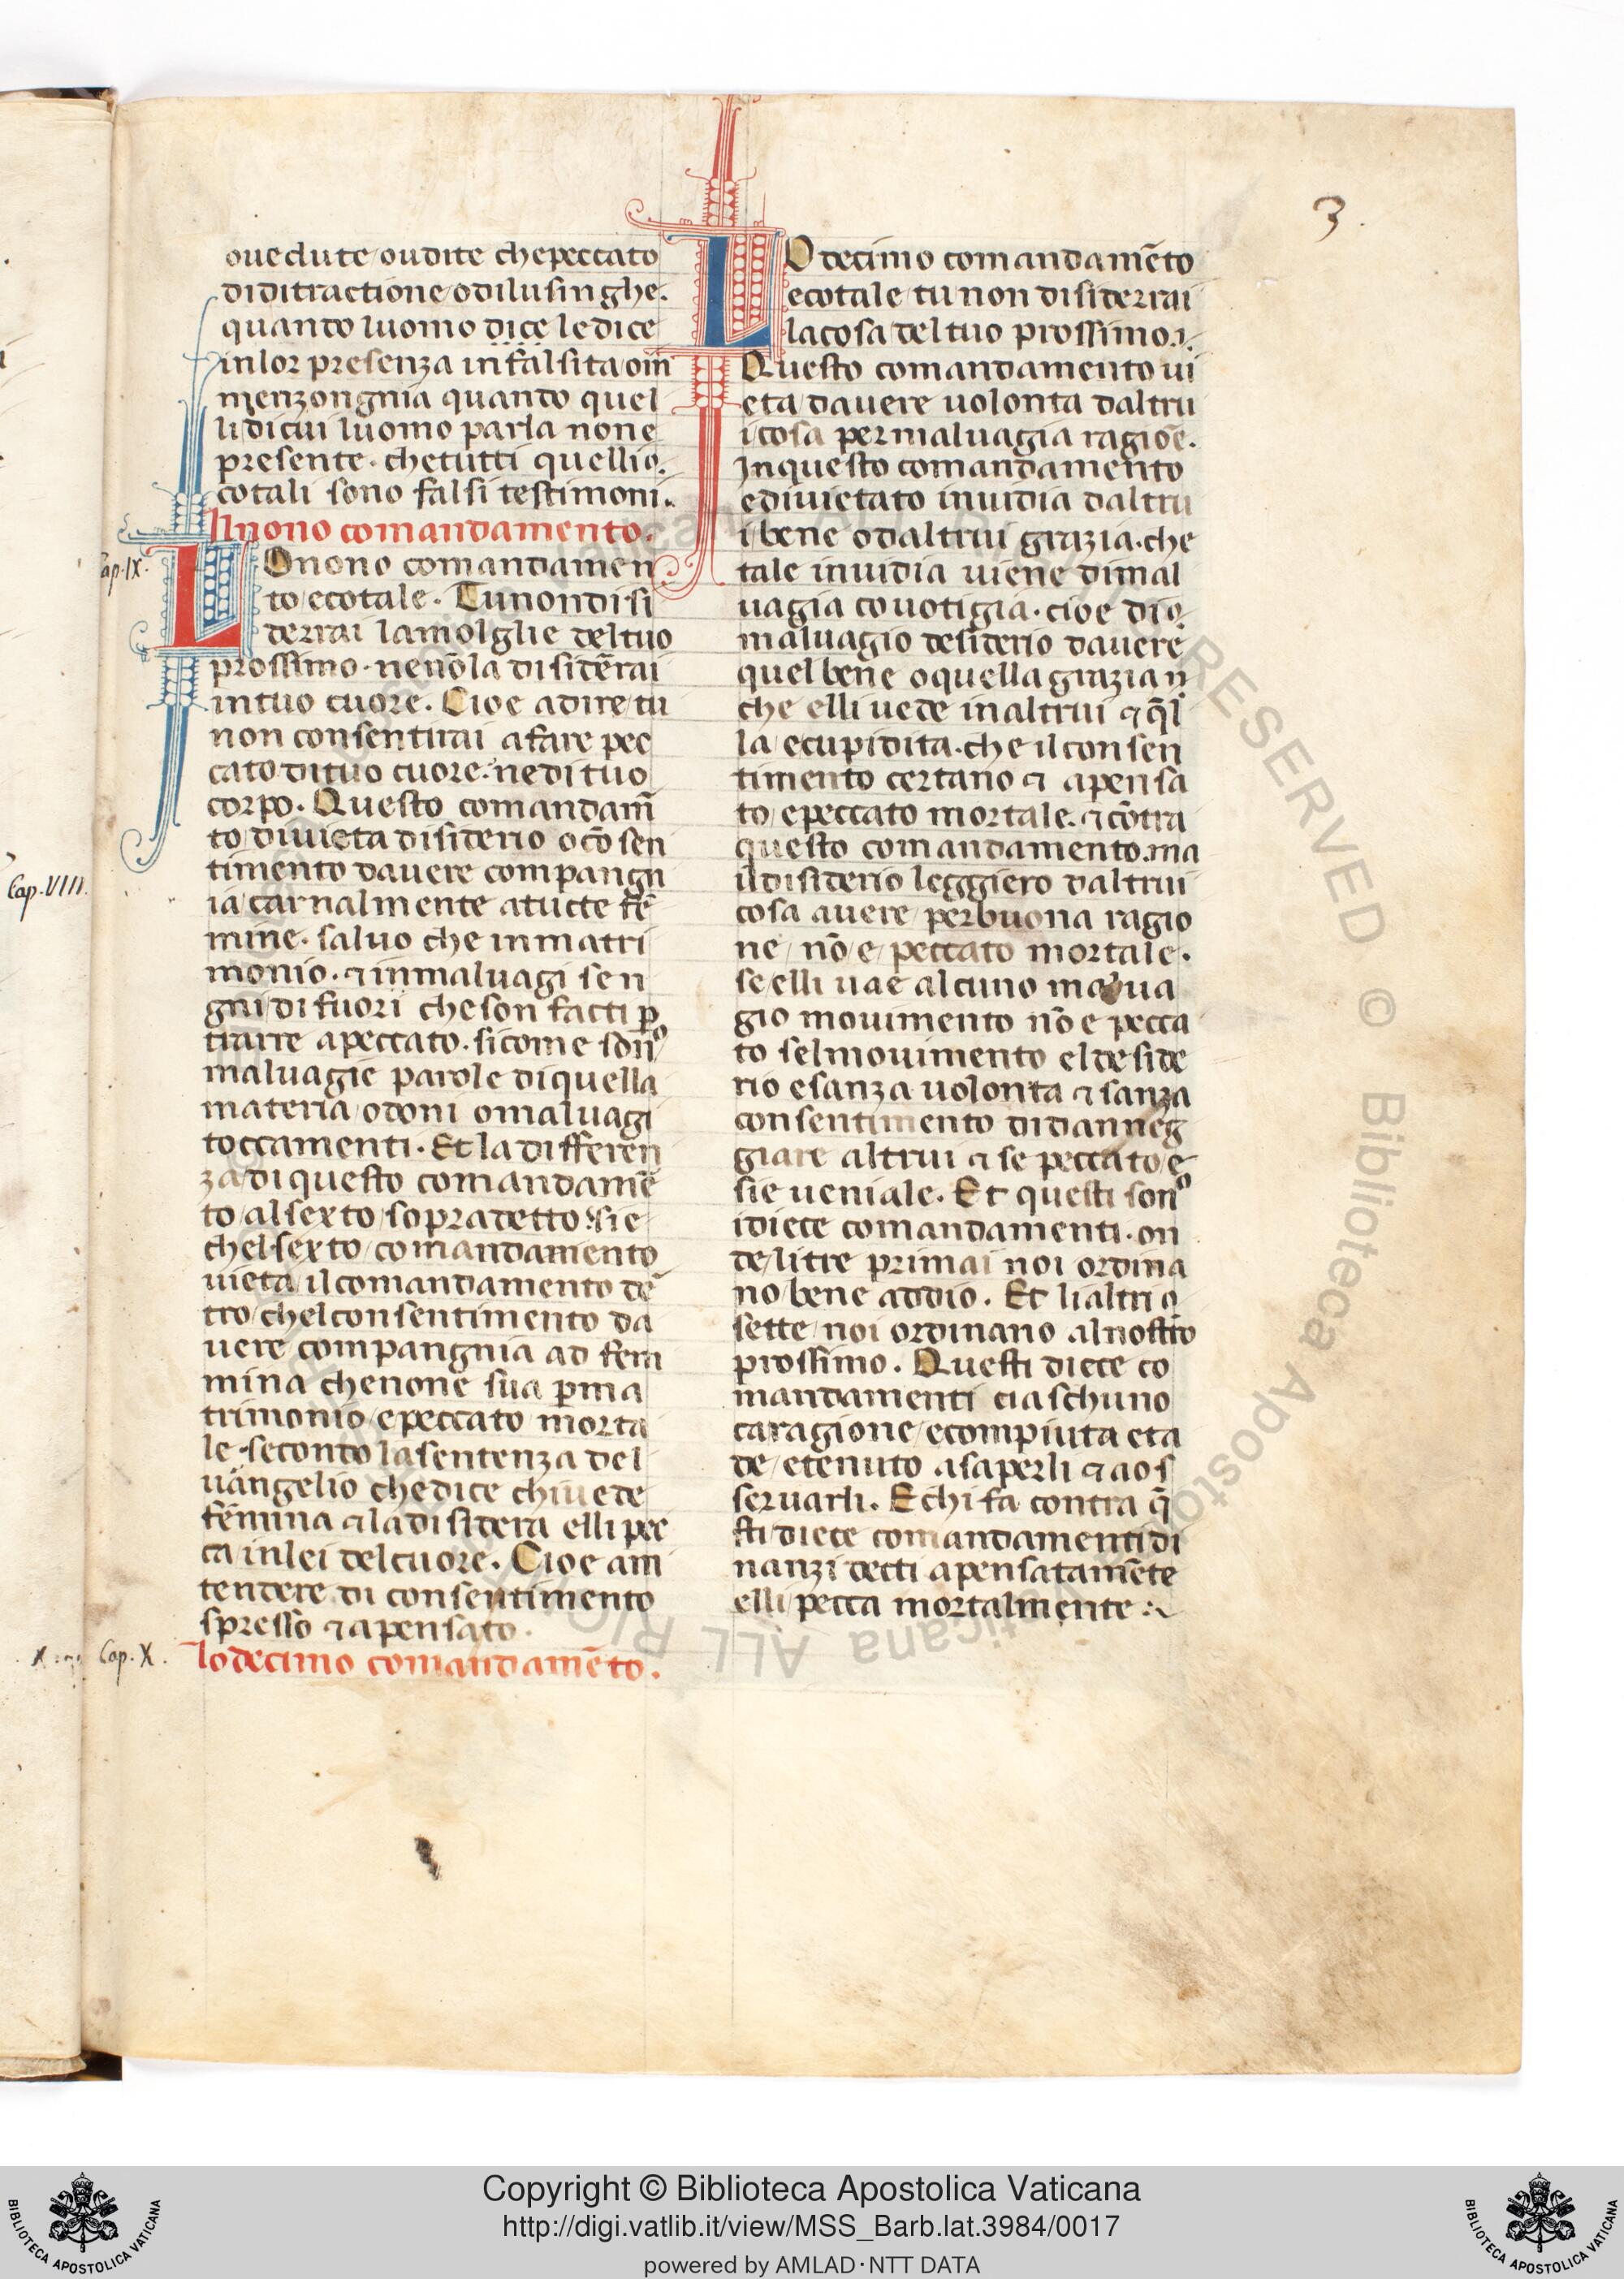 3.
ouedute oudite chepeccato
diditractione odilusinghe.
quando luomo dice ledice
inlor presenza infalsita om
menzongnia quando quel
lidicui luomo parla none
presente. chetutti quellio.
cotali sono falsi testimoni.
Ilnono comandamento.
Cap. IX.
LOnono comandamen
to ecotale. Tunondisi
derrai lamolglie deltuo
prossimo. nenōla disidērai
intuo cuore. Cioe adire tu
non consentirai afare pec
cato dituo cuore. neditुo
corpo. Questo comandam̄
to diuieta disiderio ocōsen
timento dauere compangn
ia carnalmente atucte fē
mine. saluo che inmatri
monio. ⁊ inmaluagi sen
gni di fuori cheson facti ꝑ
trarre apeccato. sicome sonͦ
maluagie parole diquella
materia odoni omaluagi
toccamenti. Et la differen
za di questo comandamē
to alsexto sopradetto. sie
chelsexto comandamento
uieta il comandamento dē
tro chelconsentimento da
uere compangnia ad fem
mina chenone sua ꝑma
trimonio epeccato morta
le. secondo lasentenza del
uangelio chedice chiuede
femina ⁊ ladisidera elli pec
ca inlei delcuore. Cioe am
tendere di consentimento
spresso ⁊ apensato.
Cap. X.
lodecimo comandamēto.
Cap. VIII.
LO decimo comandamēto
ecotale tu non disiderrai
lacosa deltuo prossimo.
Questo comandamento ui
eta dauere uolonta daltru
i cosa per maluagia ragiōe.
Inquesto comandamento
ediuietato inuidia daltru
i bene odaltrui grazia. che
tale inuidia uiene dimal
uagia couotigia. cioe dio
maluagio desiderio dauere
quel bene oquella grazia
che elli uede inaltrui ⁊ q̄l
la ecupidita. che il consen
timento certano ⁊ apensa
to epeccato mortale. ⁊ cōtra
questo comandamento. ma
il disiderio leggiero daltrui
cosa auere per buona ragio
ne nō e peccato mortale.
se elli uae alcuno malua
gio mouimento nō e pecca
to selmouimento eldeside
rio esanza uolonta ⁊ sanza
consentimento didanneg
giare altrui ⁊ se peccato e
sie ueniale. Et questi sonͦ
idiece comandamenti. on
de litre primai noi ordina
no bene addio. Et lialtri o
sette noi ordinano alnostro
prossimo. Questi diece co
mandamenti ciaschuno
caragione ecompiuta eta
de etenuto asaperli ⁊ aos
seruarli. Echi fa contra q̄
sti diece comandamenti di
nanzi decti apensatamēte
elli pecca mortalmente
ALL RIGHTS RESERVED © Biblioteca Apostolica Vaticana
Copyright © Biblioteca Apostolica Vaticana
http://digi.vatlib.it/view/MSS_Barb.lat.3984/0017
powered by AMLAD·NTT DATA
BIBLIOTECA APOSTOLICA VATICANA
BIBLIOTECA APOSTOLICA VATICANA